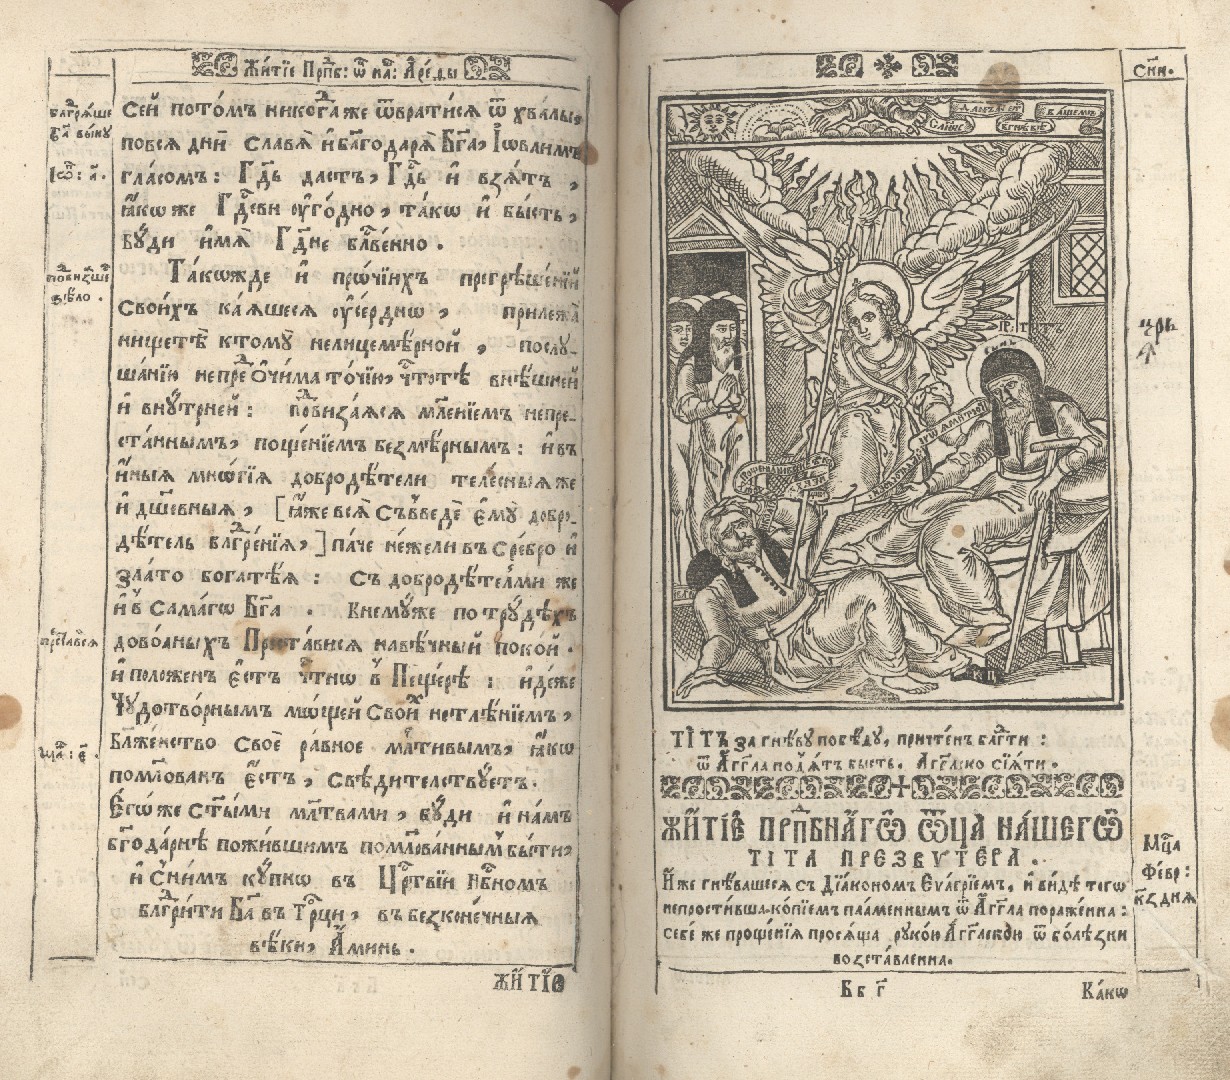 Жи́тїе Прпⷣб: ѿ на: Аре́ѳы
сей пото́мъ никогда же ѿврати́ся ѿ хвалы̀,
повся̀ днѝ славя̀ и҆ благодаря̀ Бг҃а, І҆ѡвлимъ
гла́сомъ: Гдⷭ҇ь даст, Гдⷭ҇ь и҆ взя́тъ,
ꙗ҆́коже Гдⷭ҇еви ᲂу҆го́дно, та́кѡ и҆ бы́сть,
бꙋ́ди и҆́мя Гдⷭ҇не блгⷭ҇ве́нно.
Та́кѡжде и҆ прѡ́чїихъ прегрѣше́нїй
свои́хъ ка́яшеся ᲂу҆се́рднѡ, прилежа̀
нищетѣ̀ ктомꙋ̀ нелицемѣ́рной, послꙋ-
ша́нїю непреѻ҆чи́ма то́чїю, чⷭ҇тотѣ̀ внѣ́шней
и҆ внꙋ́трней: подвиза́яся мл҃е́нїемъ непре-
ста́ннымъ, поще́нїемъ безмѣ́рнымъ: и҆ въ
и҆́ныя мнѡ́гїя добродѣ́тели тѣле́сныя же
и҆ дш҃е́вныя, [ꙗ҆́же вся̀ съвведѐ є҆мꙋ̀ добро-
дѣ́тель блгⷣре́нїя,] па́че не́жели въ сребро̀ и҆
зла́то богатѣ́я: съ добродѣ́телми же
и҆ в̾ самаго̀ Бг҃а. Кнемꙋ́же по трꙋдѣ́хъ
дово́лныхъ Преста́вися навѣ́чный поко́й.
и҆ положе́нъ є҆́стъ чⷭ҇тнѡ в̾ Пеще́рѣ: и҆дѣ́же
Чꙋдотво́рнымъ мѡ́щей свои́ нетлѣ́нїемъ,
Блаже́нство своѐ ра́вное млⷭ҇тивымъ, ꙗ҆́кѡ
поми́лованъ є҆́стъ, свѣдителствꙋ́етъ.
Є҆гѡ́же ст҃ы́ми мл҃твами, бꙋ́ди и҆ на́мъ
блгⷣода́рнѣ пожи́вшимъ поми́лѡваннымъ бы́ти,
и҆ сни́мъ кꙋ́пнѡ въ Црⷭ҇твїи Нбⷭ҇номъ
блгⷣри́ти Бг҃а въ Трⷪ҇ци, въ безконе́чныя
вѣ́ки, А҆ми́нь.
ЖИ́ТЇЕ
благдря́ше
Бг҃а вы́нꙋ
І҆ѡ́в: а҃.
подвиза́ше
ѕѣло̀.
преста́вися
Маⷴ҇: є҃.
СЛЫ́ШЕ
ПР ТИТЪ
ТІ́ТЪ за гнѣ́вꙋ побѣ́дꙋ, причте́нъ бл҃гти:
ѿ А҆́гг҃ла под̾я́тъ бы́сть. А҆́гг҃лско сїя́ти.
ЖИ́ТЇЕ ПРПⷣБНА́ГѠ ѾЦА̀ НА́ШЕГѠ
ТІ́ТА ПРЕЗВѴ́ТЕРА.
И҆́же гнѣ́вашеся съ Дїа́кономъ Еѵа́грїемъ, и҆ ви́дѣ того̀
непрости́вша, ко́пїемъ пла́меннымъ ѿ А҆́гг҃ла пораже́нна:
себѐ же проще́нїя прося́ща рꙋко́ю А҆́гг҃лскою ѿ болѣ́зни
возста́вленна.
Мцⷭ҇а
Фе́вр:
к҃з дня
Бб г҃
Ка́кѡ